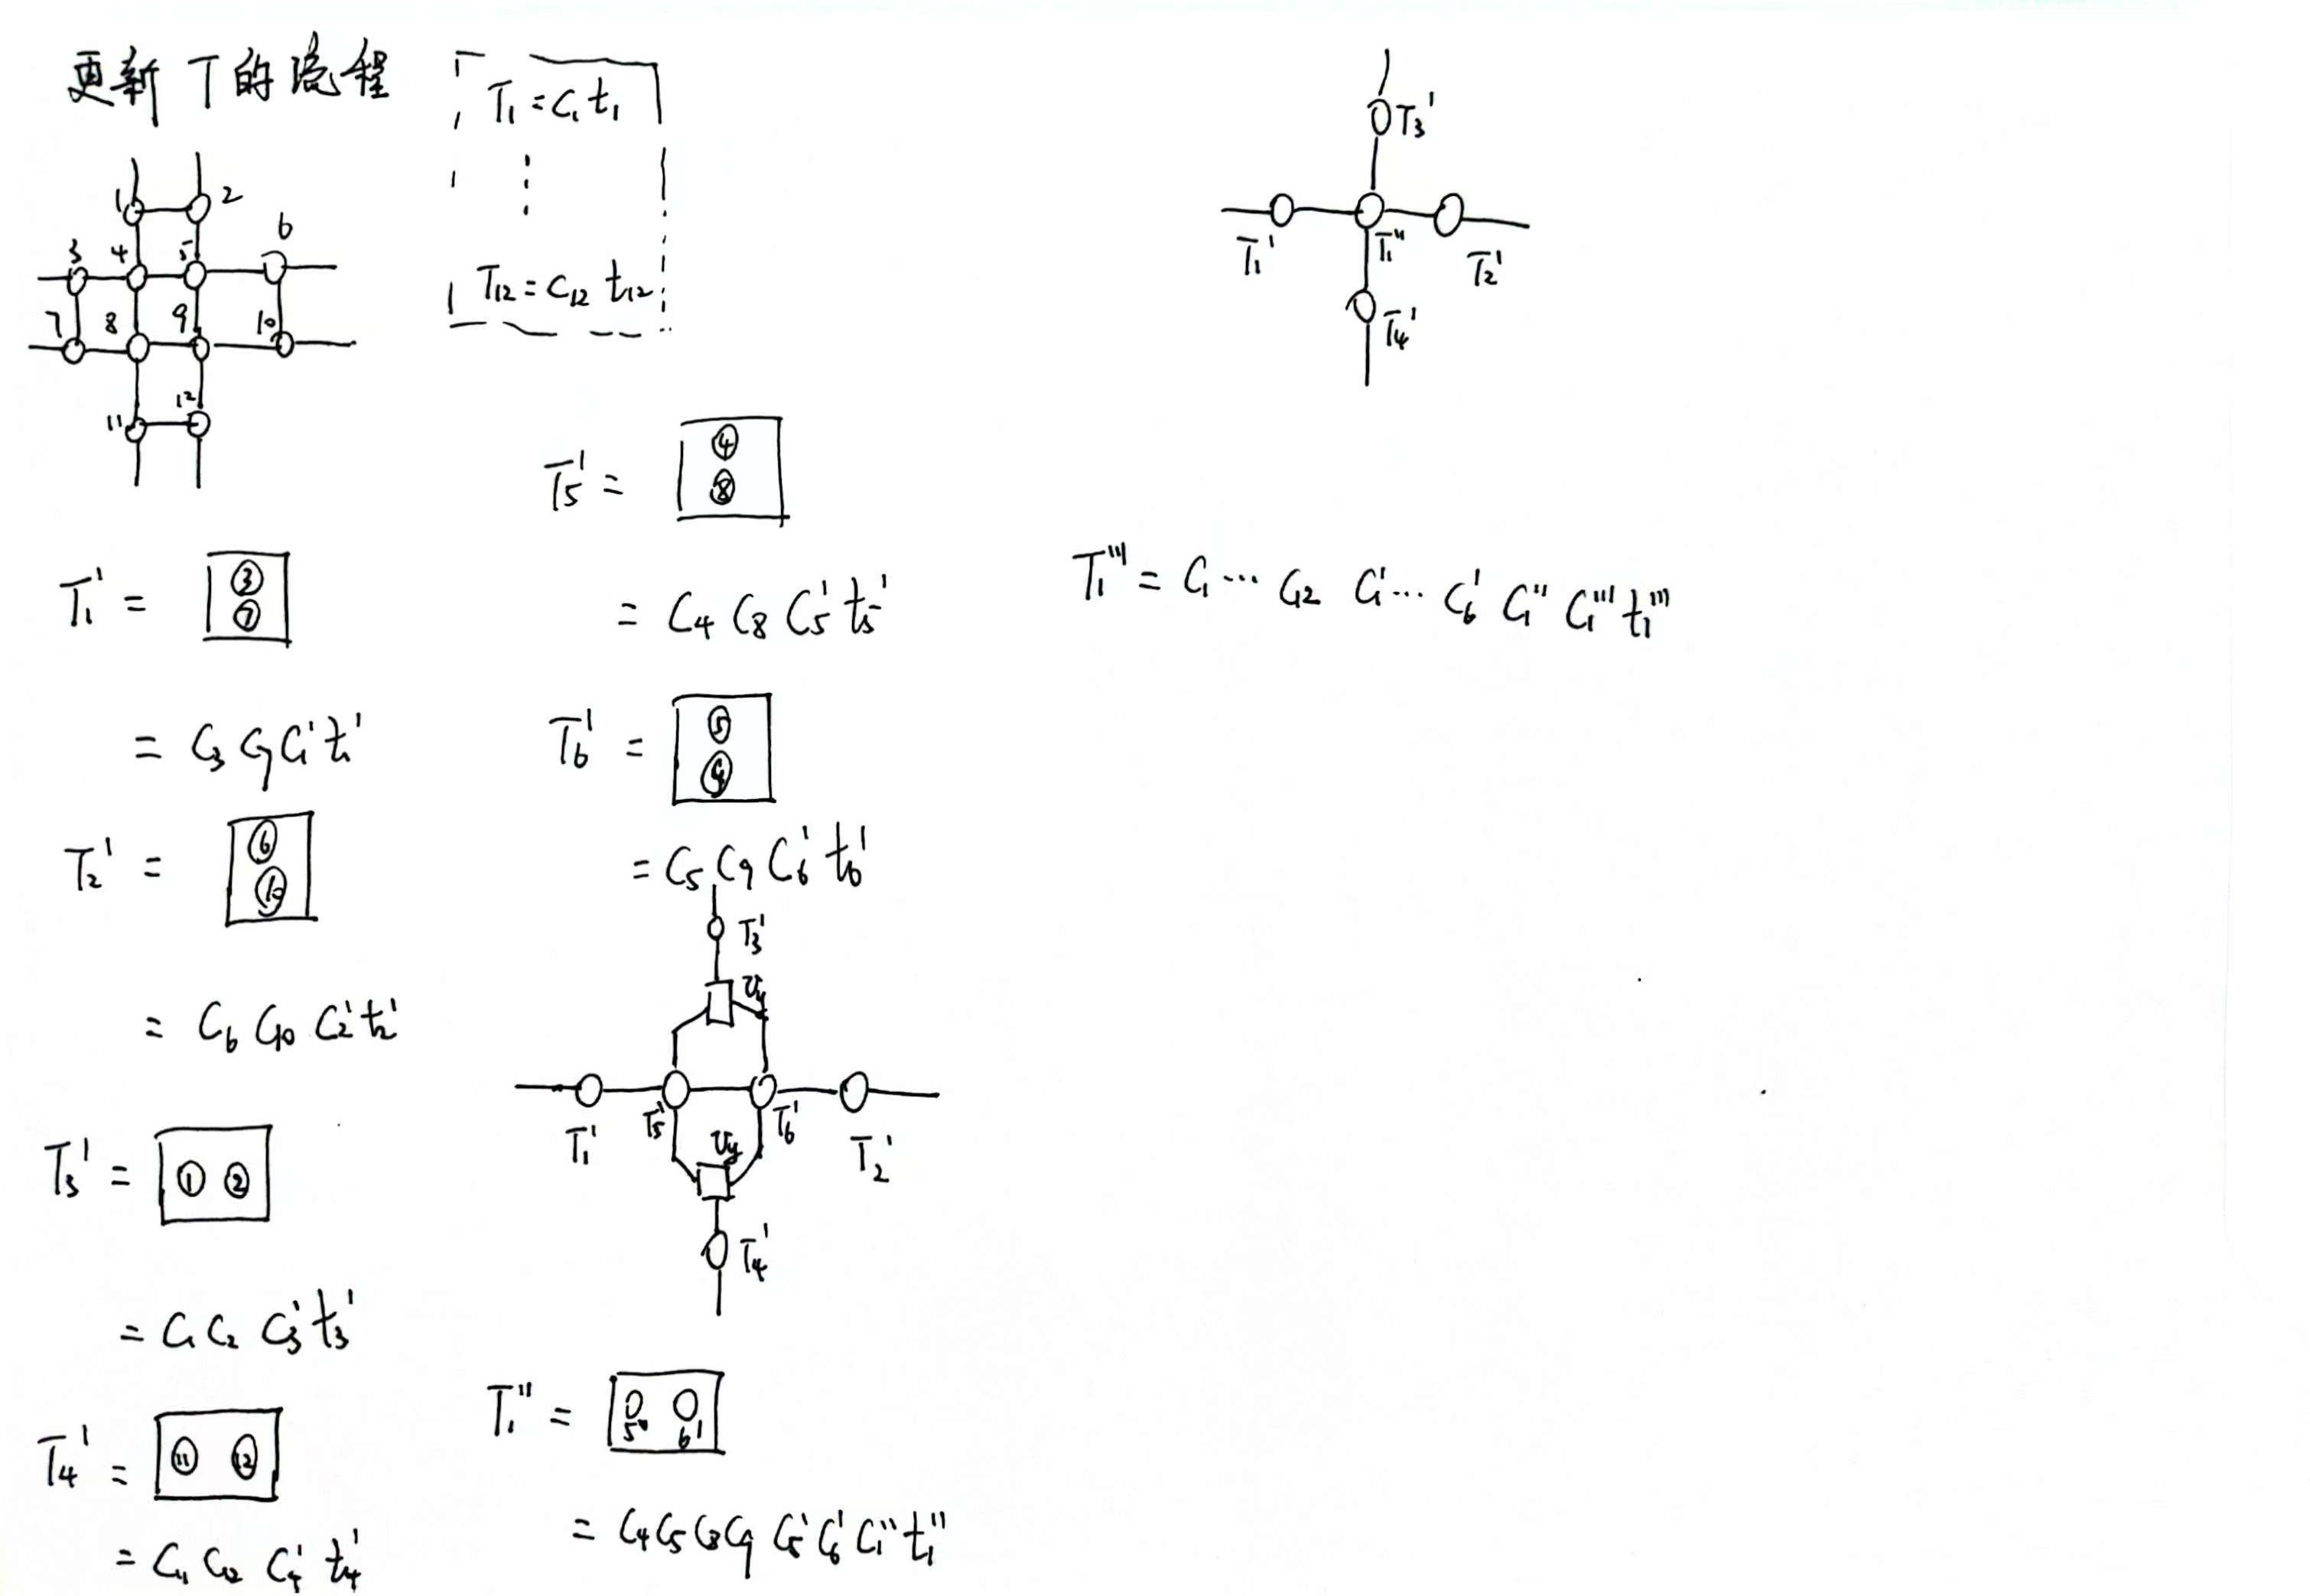 更新 T的流程
T₁ = C₁ t₁
⋮
T₁₂ = C₁₂ t₁₂
1 2
3 4 5 6
7 8 9 10
11 12
T₁' = ③ ⑦
= C₃ C₇ C₁' t₁'
T₂' = ⑥ ⑩
= C₆ C₁₀ C₂' t₂'
T₃' = ① ②
= C₁ C₂ C₃' t₃'
T₄' = ⑪ ⑫
= C₁₁ C₁₂ C₄' t₄'
T₅' = ④ ⑧
= C₄ C₈ C₅' t₅'
T₆' = ⑤ ⑨
= C₅ C₉ C₆' t₆'
T₃'
Uy
T₁' T₅' T₆' T₂'
Uy
T₄'
T₁'' = 5' 6'
= C₄ C₅ C₈ C₉ C₅' C₆' C₁'' t₁''
T₃'
T₁' T₁'' T₂'
T₄'
T₁''' = C₁ ⋯ C₁₂ C₁' ⋯ C₆' C₁'' C₁''' t₁'''